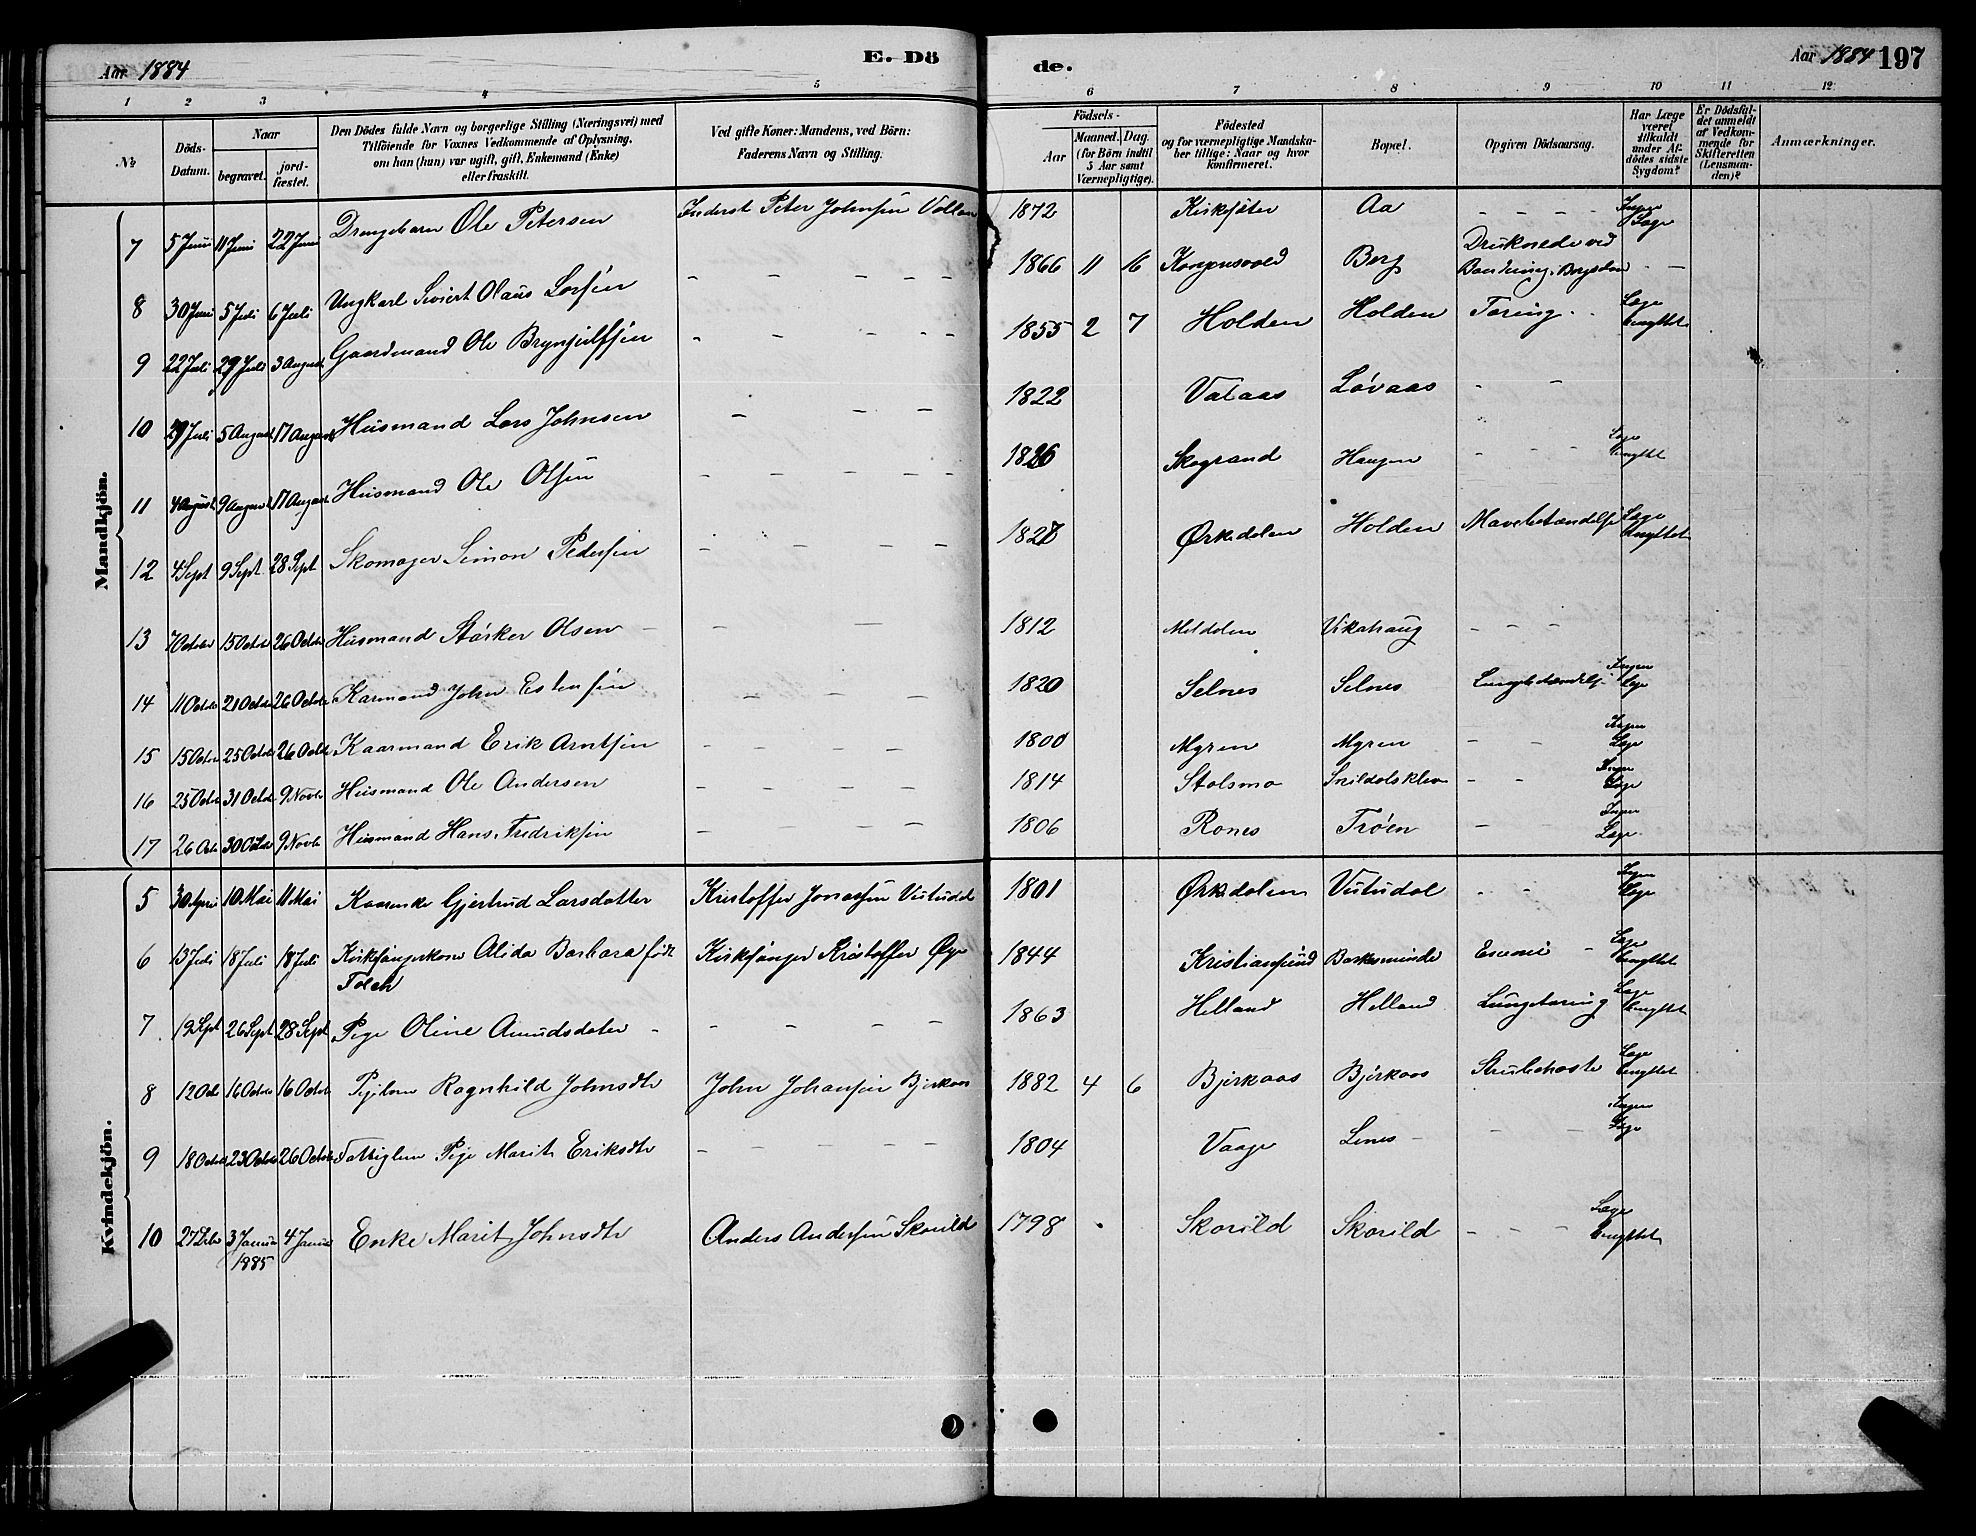 Aar 1884
E. Dö
de.
Aar 1884 197
1 2 3 4 5 6 7 8 9 10 11 12
No
Döds-Datum.
Naar
begravet.
jord-fæstet.
Den Dödes fulde Navn og borgerlige Stilling (Næringsvei) med
Tilföiende for Voxnes Vedkommende af Oplysning,
om han (hun) var ugift, gift, Enkemand (Enke)
eller fraskilt.
Ved gifte Koner: Mandens, ved Börn:
Faderens Navn og Stilling.
Födsels-
Aar
Maaned. Dag.
(for Börn indtil
5 Aar samt
Værnepligtige).
Födested
og for værnepligtige Mandska-
ber tillige: Naar og hvor
konfirmeret.
Bopæl.
Opgiven Dödsaarsag.
Har Læge
været
tilkaldt
under Af-
dödes sidste
Sygdom?
Er Dödsfal-
det anmeldt
af Vedkom-
mende for
Skifteretten
(Lensman-
den)?
Anmærkninger.
Mandkjön.
7 5 Juni 11 Juni 22 Juni Drengebarn Ole Petersen Inderst Peter Johnsen 1872 Aa - - - - Ingen Læge
8 30 Juni 5 Juli 6 Juli Ungkarl Sivert Olaus Larsen - - - - 1866 11 16 Berg Druknede ved - -
9 22 Juli 29 Juli 3 August Gaardmand Ole Brynjulfsen - - - - 1855 2 7 Holden Holden Tæring Læge benyttet
10 29 Juli 5 August 17 August Husmand Lars Johnsen - - - 1822 Vataas Løvaas - -
11 4 August 9 August 17 August Husmand Ole Olsen - - - - 1826 Skogrand Haugen - - - Læge benyttet
12 4 Sept 9 Sept 28 Sept Skomager Simon Pedersen - - - - 1827 Ørkedalen Holden Mavebetændelse Læge benyttet
13 7 Octbr 15 Octbr 26 Octbr Husmand Størker Olsen - - - 1812 Meldalen Vikahaug - - -
14 11 Octbr 21 Octbr 26 Octbr Karmand John Estensen - - - - 1820 Selnes Selnes Lungebetændelse Ingen Læge
15 15 Octbr 25 Octbr 26 Octbr Kaarmand Erik Arntsen - - - - 1800 Myren Myren - - Ingen Læge
16 25 Octbr 31 Octbr 9 Novbr Husmand Ole Andersen - - - - 1814 Stolsmo Snildalsklev - - Ingen Læge
17 26 Octbr 30 Octbr 9 Novbr Husmand Hans Fredriksen - - - - 1806 Rones Trøen - - Ingen Læge
Kvindekjön.
5 30 April 10 Mai 11 Mai Kaarenke Gjertrud Larsdatter Kristoffer Jonassen 1801 Ørkdalen - - Ingen Læge
6 13 Juli 18 Juli 18 Juli Kirkesangerkone Alida Barbara født Kirkesanger Kristoffer Øye 1844 Kristiansund - Læge benyttet
7 19 Sept 26 Sept 28 Sept Pige Oline Amundsdater - - - - - 1863 Helland Helland Lungetæring Læge benyttet
8 12 Oct 16 Octbr 16 Octbr Pigebarn Ragnhild Johnsdtr John Johansen Bjørkaas 1882 4 6 Bjørkaas Bjørkaas Strubehoste Læge benyttet
9 18 Octbr 23 Octbr 26 Octbr Fattiglem Pige Marit Eriksdtr - - - - - 1804 Vaage Lenes - - - Ingen Læge
10 27 Dcbr 3 Januar 1885 4 Januar Enke Marit Johnsdtr Anders Andersen Skorild 1798 Skorild Skorild - - - Læge benyttet